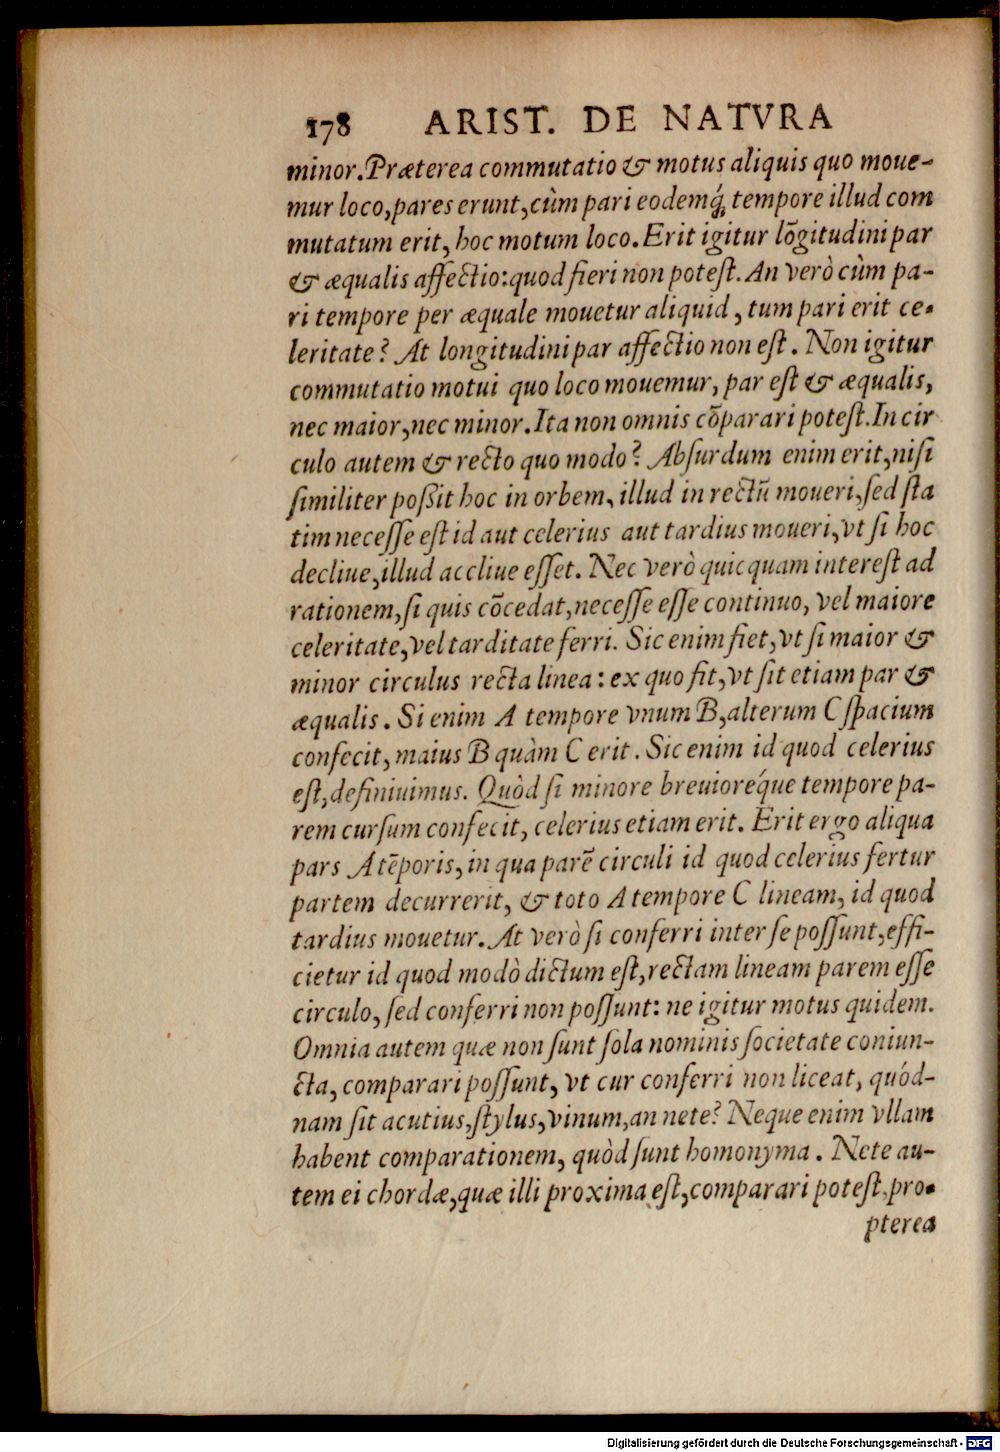 178 ARIST. DE NATVRA
minor. Præterea commutatio & motus aliquis quo moue-
mur loco, pares erunt, cùm pari eodemq́; tempore illud com
mutatum erit, hoc motum loco. Erit igitur lõgitudini par
& æqualis affectio: quod fieri non potest. An verò cùm pa-
ri tempore per æquale mouetur aliquid, tum pari erit ce-
leritate? At longitudini par affectio non est. Non igitur
commutatio motui quo loco mouemur, par est & æqualis,
nec maior, nec minor. Ita non omnis cõparari potest. In cir
culo autem & recto quo modo? Absurdum enim erit, nisi
similiter poßit hoc in orbem, illud in rectũ moueri, sed sta
tim necesse est id aut celerius aut tardius moueri, vt si hoc
decliue, illud accliue esset. Nec verò quicquam interest ad
rationem, si quis cõcedat, necesse esse continuo, vel maiore
celeritate, vel tarditate ferri. Sic enim fiet, vt si maior &
minor circulus recta linea: ex quo fit, vt sit etiam par &
æqualis. Si enim A tempore vnum B, alterum C spacium
confecit, maius B quàm C erit. Sic enim id quod celerius
est, definiuimus. Quòd si minore breuioreq́ue tempore pa-
rem cursum confecit, celerius etiam erit. Erit ergo aliqua
pars A tẽporis, in qua parẽ circuli id quod celerius fertur
partem decurrerit, & toto A tempore C lineam, id quod
tardius mouetur. At verò si conferri inter se possunt, effi-
cietur id quod modò dictum est, rectam lineam parem esse
circulo, sed conferri non possunt: ne igitur motus quidem.
Omnia autem quæ non sunt sola nominis societate coniun-
cta, comparari possunt, vt cur conferri non liceat, quód-
nam sit acutius, stylus, vinum, an nete? Neque enim vllam
habent comparationem, quòd sunt homonyma. Nete au-
tem ei chordæ, quæ illi proxima est, comparari potest, pro-
pterea
Digitalisierung gefördert durch die Deutsche Forschungsgemeinschaft - DFG